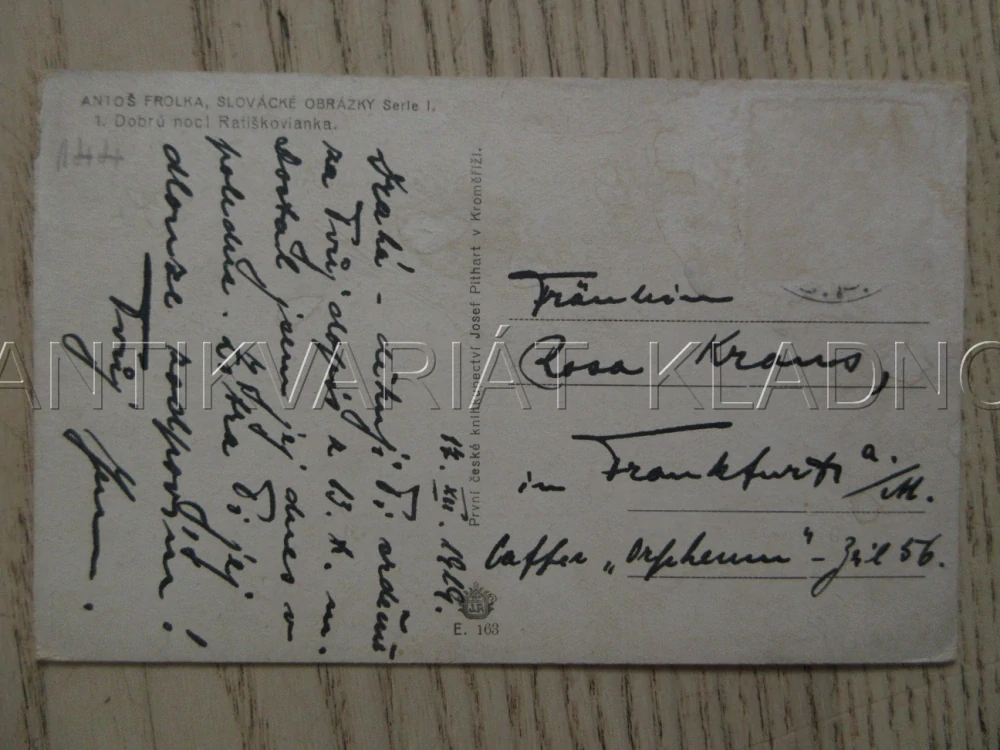 ANTOŠ FROLKA, SLOVÁCKÉ OBRÁZKY Serie I.
1. Dobrú noc! Ratiškovianka.
144
17. XII. 1919.
Drahá - děkuji Ti srdečně
za Tvůj dopis z 13. t. m.
Dostal jsem jej dnes v
poledne. Zítra Ti jej
dlouze zodpovím!
Tvůj
První české knihkupectví Josef Pithart v Kroměříži.
E. 163
Fräulein
Rosa Kraus,
in Frankfurt a/M.
Caffee „Orpheum" - Zeil 56.
ANTIKVARIÁT KLADNO